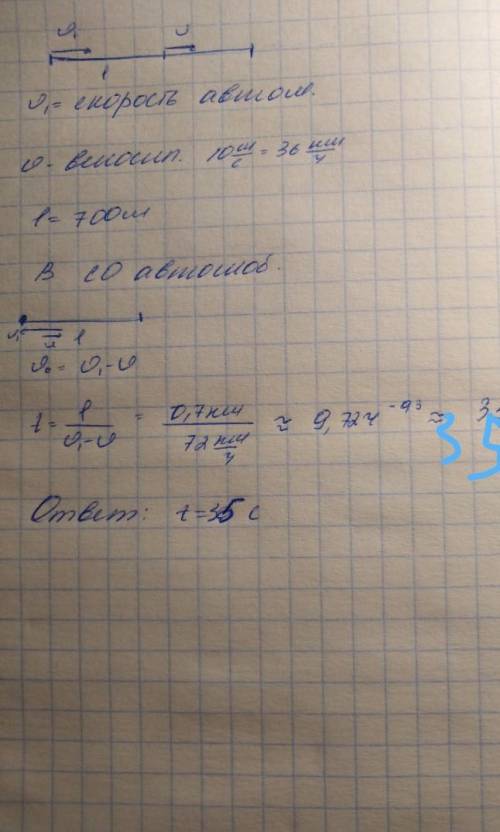 υ₁ υ
l
υ₁ = скорость автом.
υ - велосип. 10 м/с = 36 км/ч
l = 700м
В СО автомоб.
υ₁ υ l
υ₀ = υ₁ - υ
t = l/(υ₁-υ) = 0,7км/(72 км/ч) ≈ 9,72ч⁻⁹³ ≈ 35
Ответ: t = 35 с